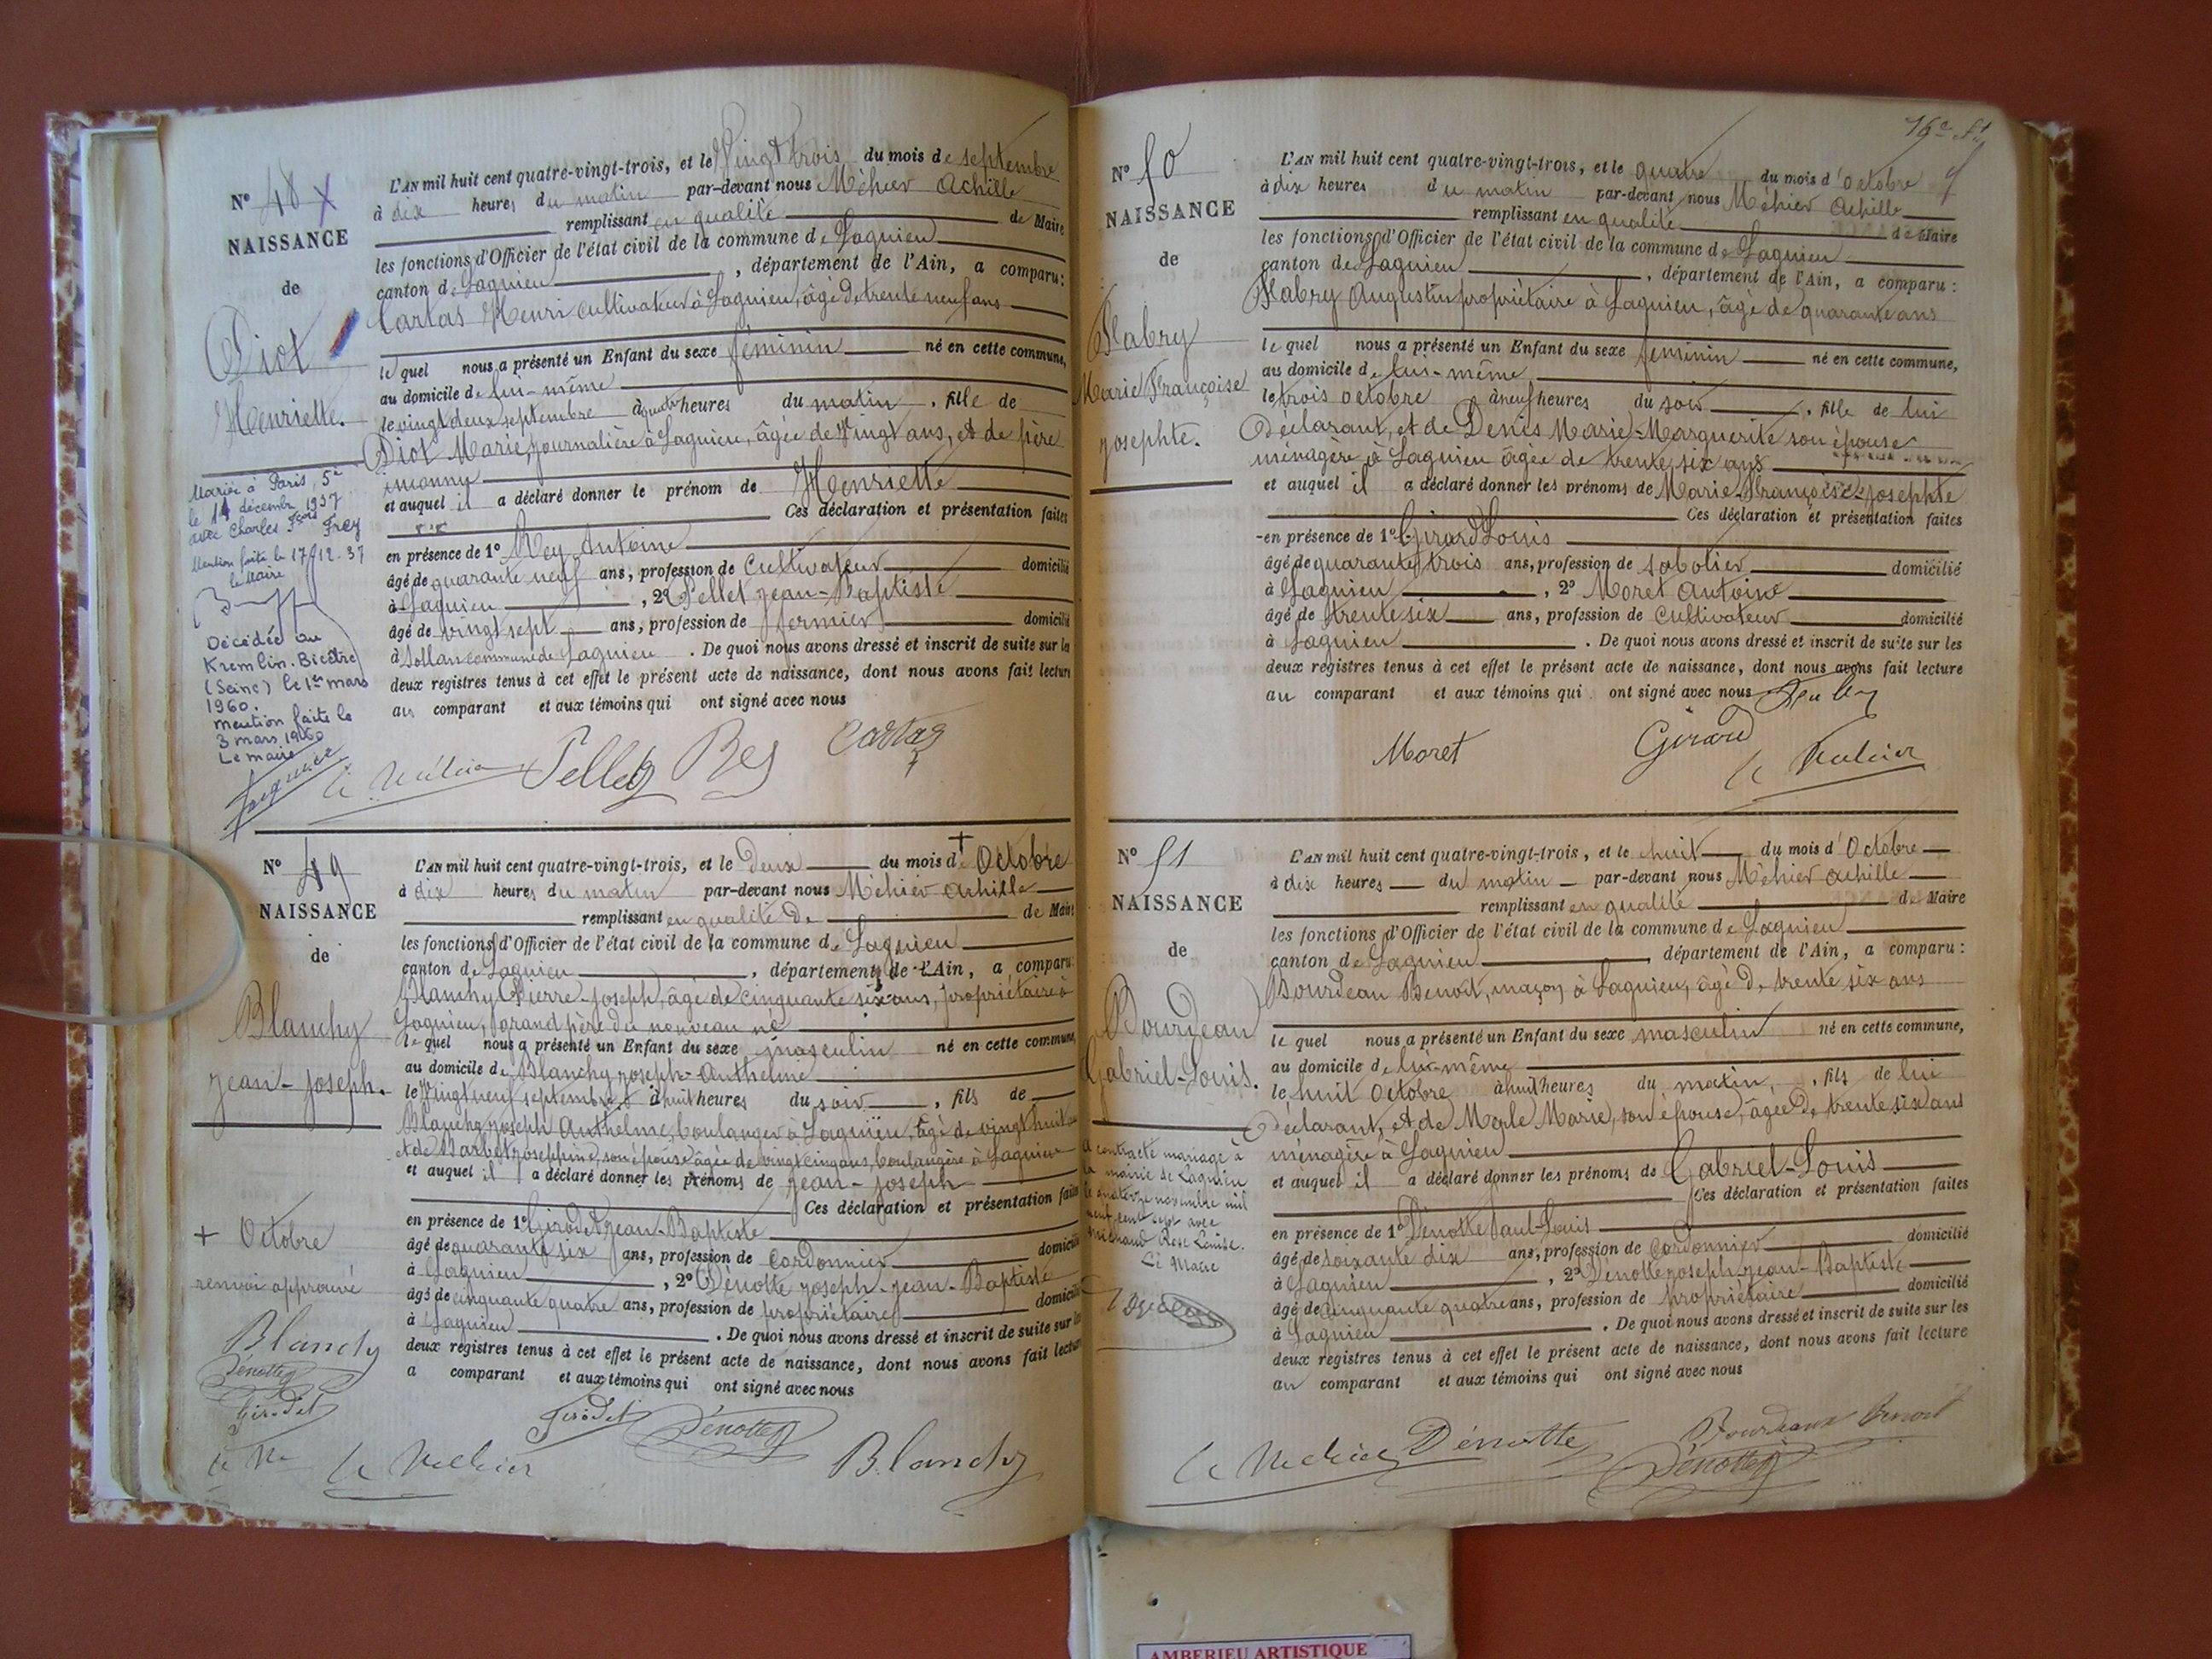 N° 48 X
NAISSANCE
de
Diot
Henriette.
Mariée à Paris, 5e
le 14 décembre 1937
avec Charles Fçois Frey
Mention faite le 17-12-37
le Maire
Décédée au
Kremlin-Bicêtre
(Seine) le 1er mars
1960.
mention faite le
3 mars 1960
Le maire
L'AN mil huit cent quatre-vingt-trois, et le Vingt trois du mois de septembre
à dix heures du matin par-devant nous Méhier Achille
remplissant en qualité de Maire
les fonctions d'Officier de l'état civil de la commune de Lagnieu
canton de Lagnieu, département de l'Ain, a comparu:
Cartas Henri cultivateur à Lagnieu, âgé de trente neuf ans
lequel nous a présenté un Enfant du sexe féminin né en cette commune,
au domicile de lui-même
le vingt deux septembre à quatre heures du matin, fille de
Diot Marie, journalière à Lagnieu, âgée de vingt ans, et de père
inconnu
et auquel il a déclaré donner le prénom de Henriette
Ces déclaration et présentation faites
en présence de 1° Rey Antoine
âgé de quarante neuf ans, profession de cultivateur domicilié
à Lagnieu, 2° Pellet Jean-Baptiste
âgé de vingt sept ans, profession de fermier domicilié
à Sollan commune de Lagnieu. De quoi nous avons dressé et inscrit de suite sur les
deux registres tenus à cet effet le présent acte de naissance, dont nous avons fait lecture
au comparant et aux témoins qui ont signé avec nous
Cartas
A. Méhier Pellet Rey
N° 49
NAISSANCE
de
Blanchy
Jean-Joseph.
+ Octobre
renvoi approuvé
Blanchy
Dénotte
Girodet
L'AN mil huit cent quatre-vingt-trois, et le Deux du mois d+ Octobre
à dix heures du matin par-devant nous Méhier Achille
remplissant en qualité de de Maire
les fonctions d'Officier de l'état civil de la commune de Lagnieu
canton de Lagnieu, département de l'Ain, a comparu:
Blanchy Pierre-Joseph, âgé de cinquante six ans, propriétaire à
Lagnieu, grand père du nouveau né
lequel nous a présenté un Enfant du sexe masculin né en cette commune,
au domicile de Blanchy Joseph-Anthelme
le Vingt neuf septembre à huit heures du soir, fils de
Blanchy Joseph Anthelme, boulanger à Lagnieu, âgé de vingt huit ans
et de Barbet Joséphine, son épouse âgée de vingt cinq ans, boulangère à Lagnieu
et auquel il a déclaré donner les prénoms de Jean-Joseph
Ces déclaration et présentation faites
en présence de 1° Girodet Jean-Baptiste
âgé de quarante six ans, profession de cordonnier domicilié
à Lagnieu, 2° Dénotte Joseph-Jean-Baptiste
âgé de cinquante quatre ans, profession de propriétaire domicilié
à Lagnieu. De quoi nous avons dressé et inscrit de suite sur les
deux registres tenus à cet effet le présent acte de naissance, dont nous avons fait lecture
a comparant et aux témoins qui ont signé avec nous
Girodet Dénotte
A. Méhier Blanchy
N° 50
NAISSANCE
de
Flabry
Marie Françoise
Josephte.
L'AN mil huit cent quatre-vingt-trois, et le quatre du mois d'octobre
à dix heures du matin par-devant nous Méhier Achille
remplissant en qualité de Maire
les fonctions d'Officier de l'état civil de la commune de Lagnieu
canton de Lagnieu, département de l'Ain, a comparu:
Flabry Augustin propriétaire à Lagnieu, âgé de quarante ans
lequel nous a présenté un Enfant du sexe féminin né en cette commune,
au domicile de lui-même
le trois octobre à neuf heures du soir, fille de lui
Déclarant, et de Denis Marie-Marguerite son épouse
ménagère à Lagnieu âgée de trente six ans
et auquel il a déclaré donner les prénoms de Marie-Françoise-Josephte
Ces déclaration et présentation faites
en présence de 1° Girard Louis
âgé de quarante trois ans, profession de sabotier domicilié
à Lagnieu, 2° Moret Antoine
âgé de trente six ans, profession de cultivateur domicilié
à Lagnieu. De quoi nous avons dressé et inscrit de suite sur les
deux registres tenus à cet effet le présent acte de naissance, dont nous avons fait lecture
au comparant et aux témoins qui ont signé avec nous
Moret Girard
A. Méhier
N° 51
NAISSANCE
de
Bourdeau
Gabriel-Louis.
A contracté mariage à
la mairie de Lagnieu
le quatorze novembre mil
neuf cent sept avec
Rose Louise.
Le Maire
L'AN mil huit cent quatre-vingt-trois, et le huit du mois d'Octobre
à dix heures du matin par-devant nous Méhier Achille
remplissant en qualité de Maire
les fonctions d'Officier de l'état civil de la commune de Lagnieu
canton de Lagnieu, département de l'Ain, a comparu:
Bourdeau Benoit, maçon à Lagnieu, âgé de trente six ans
lequel nous a présenté un Enfant du sexe masculin né en cette commune,
au domicile de lui-même
le huit Octobre à huit heures du matin, fils de lui
Déclarant, et de Merle Marie, son épouse, âgée de trente six ans
ménagère à Lagnieu
et auquel il a déclaré donner les prénoms de Gabriel-Louis
Ces déclaration et présentation faites
en présence de 1° Dénotte Paul-Louis
âgé de soixante dix ans, profession de cordonnier domicilié
à Lagnieu, 2° Dénotte Joseph-Jean-Baptiste
âgé de cinquante quatre ans, profession de propriétaire domicilié
à Lagnieu. De quoi nous avons dressé et inscrit de suite sur les
deux registres tenus à cet effet le présent acte de naissance, dont nous avons fait lecture
au comparant et aux témoins qui ont signé avec nous
Bourdeaux Benoit
A. Méhier Dénotte Dénotte
AMBERIEU ARTISTIQUE